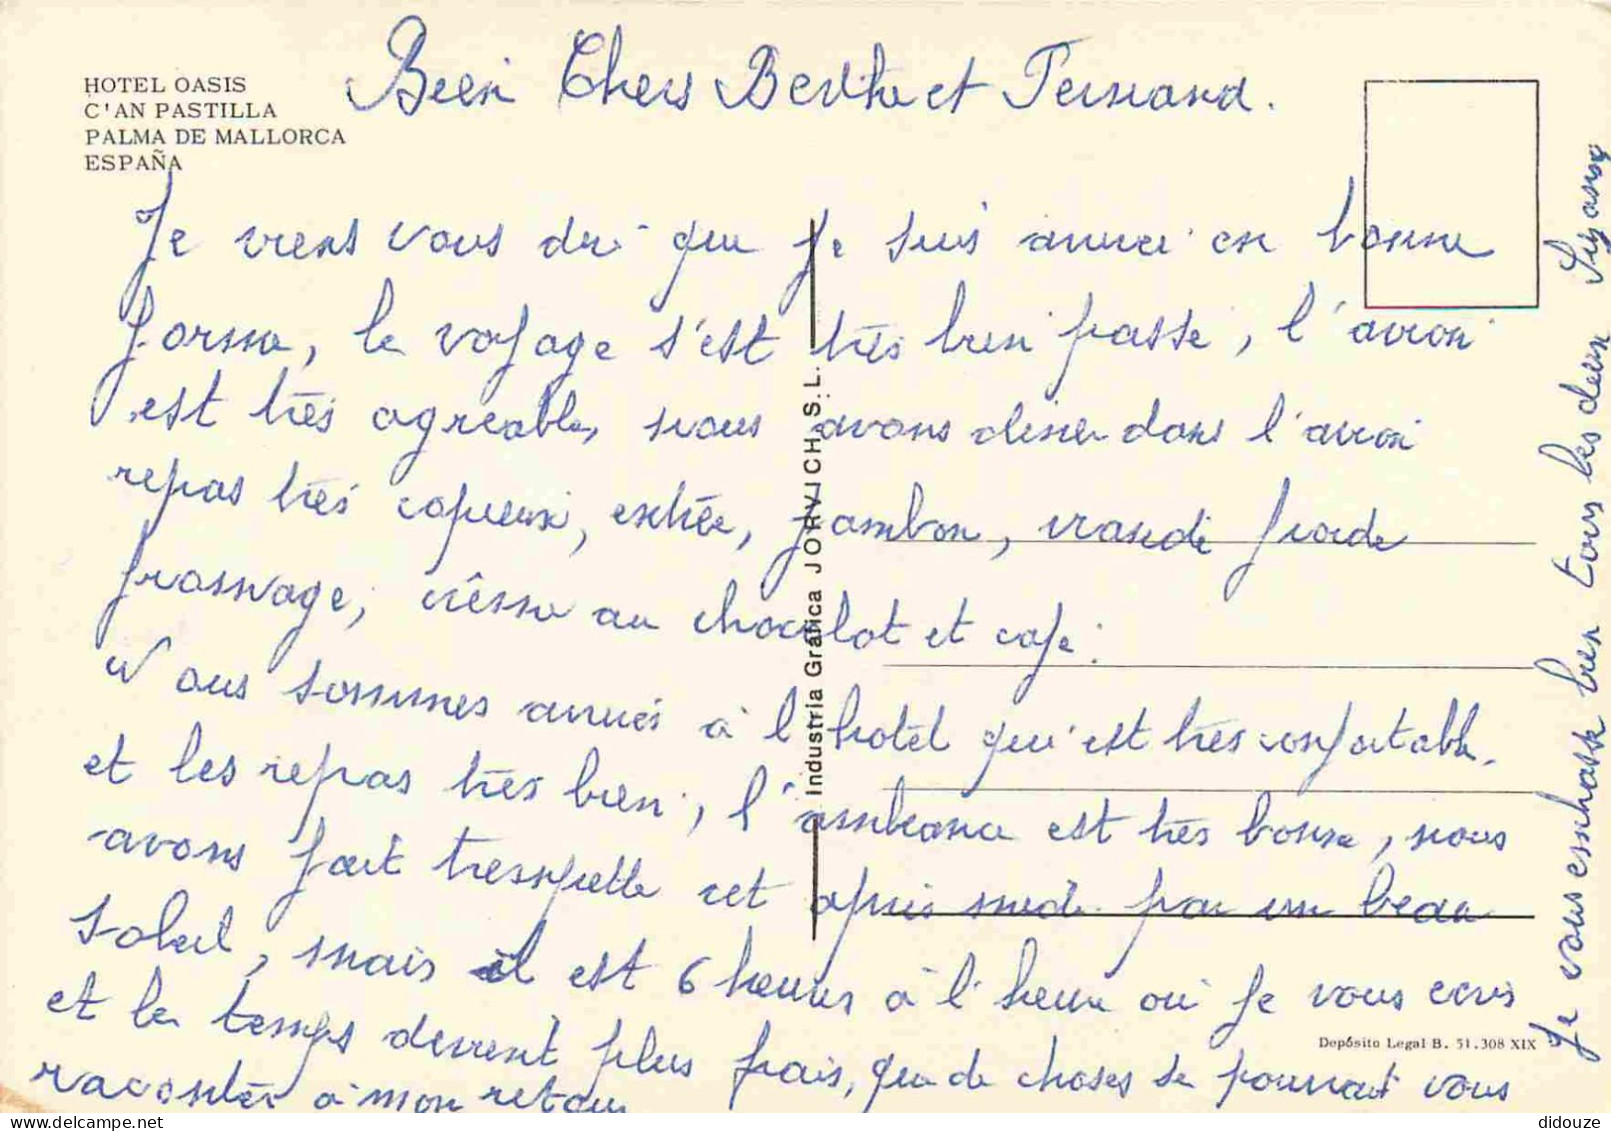 HOTEL OASIS
C'AN PASTILLA
PALMA DE MALLORCA
ESPAÑA
Bien Chers Berthe et Fernand.
Je viens vous dir que je suis arrivée en bonne
forme, le voyage s'est très bien passé, l'avion
est très agréable, nous avons diner dans l'avion
repas très copieux, entrée, jambon, viande froide
fromage, crême au chocolat et café.
Nous sommes arrivés à l'hotel qui est très confortable.
et les repas très bien, l'ambiance est très bonne, nous
avons fait trempette cet après midi par un beau
soleil, mais il est 6 heures à l'heure où je vous ecris
et le temps devient plus frais, que de choses je pourrait vous
raconter à mon retour
Je vous embrasse bien tous les deux Suzanne
Industria Gráfica JORVICH, S.L.
Depósito Legal B. 51.308 XIX
didouze